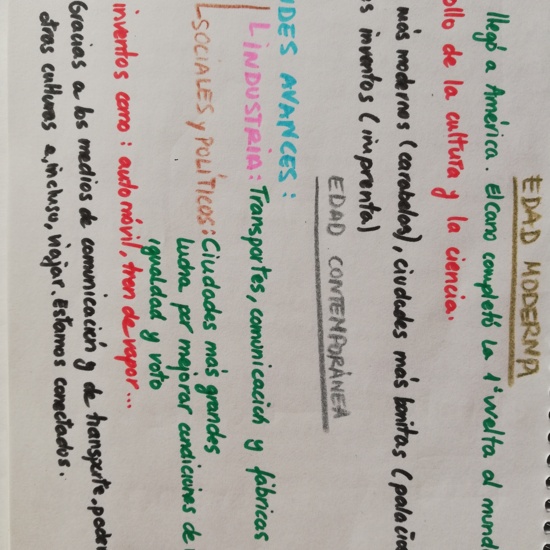 EDAD MODERNA
llegó a América. Elcano completó la 1ª vuelta al mund
ollo de la cultura y la ciencia.
más modernos (carabelas), ciudades más bonitas (palacio
s inventos (imprenta)
EDAD CONTEMPORÁNEA
NDES AVANCES:
INDUSTRIA: Transportes, comunicación y fábricas
SOCIALES y POLÍTICOS: Ciudades más grandes
lucha por mejorar condiciones de
igualdad y voto
inventos como: automóvil, tren de vapor...
Gracias a los medios de comunicación y de transporte, podem
otras culturas e, incluso, viajar. Estamos conectados.